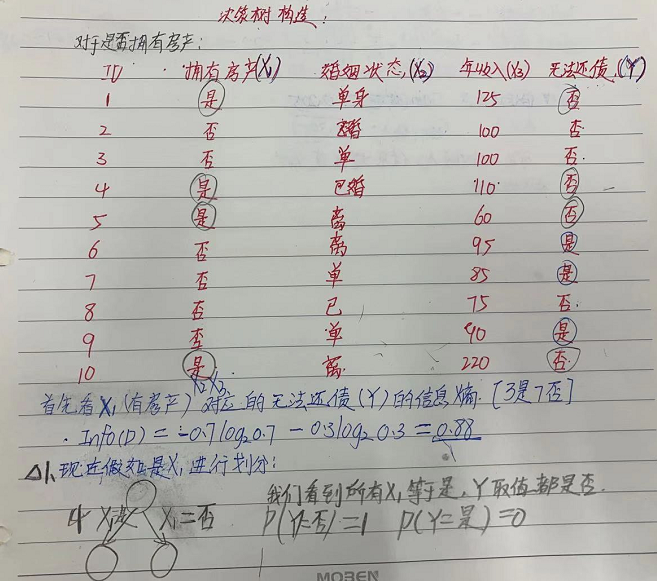 决策树构造:
对于是否拥有房产:
ID 拥有房产(X₁) 婚姻状态(X₂) 年收入(X₃) 无法还债(Y)
1 是 单身 125 否
2 否 婚 100 否
3 否 单 100 否.
4 是 已婚 110 否
5 是 离 60 否
6 否 离 95 是
7 否 单 85 是
8 否 已 75 否.
9 否 单 90 是
10 是 离. 220 否.
X₂ X₃
首先看X₁(有房产)对应的无法还债(Y)的信息熵. [3是7否]
Info(D) = -0.7log₂0.7 - 0.3log₂0.3 = 0.88
现在假如是X₁进行划分:
我们看到所有X₁等于是, Y取值都是否.
X₁=否 P(Y=否)=1 P(Y=是)=0
MOBEN